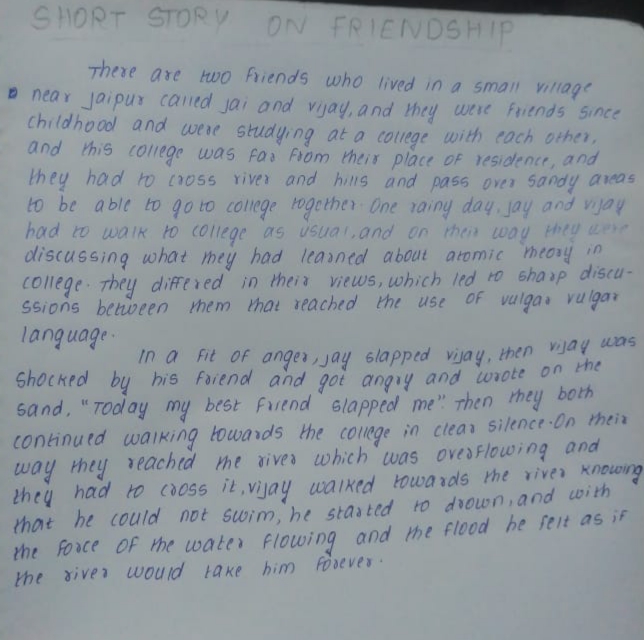 SHORT STORY ON FRIENDSHIP
There are two friends who lived in a small village
near Jaipur called Jai and vijay, and they were friends since
childhood and were studying at a college with each other,
and this college was far from their place of residence, and
they had to cross river and hills and pass over sandy areas
to be able to go to college together. One rainy day, jay and vijay
had to walk to college as usual, and on their way they were
discussing what they had learned about atomic theory in
college. they differed in their views, which led to sharp discu-
ssions between them that reached the use of vulgar vulgar
language.
In a fit of anger, jay slapped vijay, then vijay was
shocked by his friend and got angry and wrote on the
sand, "Today my best friend slapped me". Then they both
continued walking towards the college in clear silence. On their
way they reached the river which was overflowing and
they had to cross it, vijay walked towards the river knowing
that he could not swim, he started to drown, and with
the force of the water flowing and the flood he felt as if
the river would take him forever.